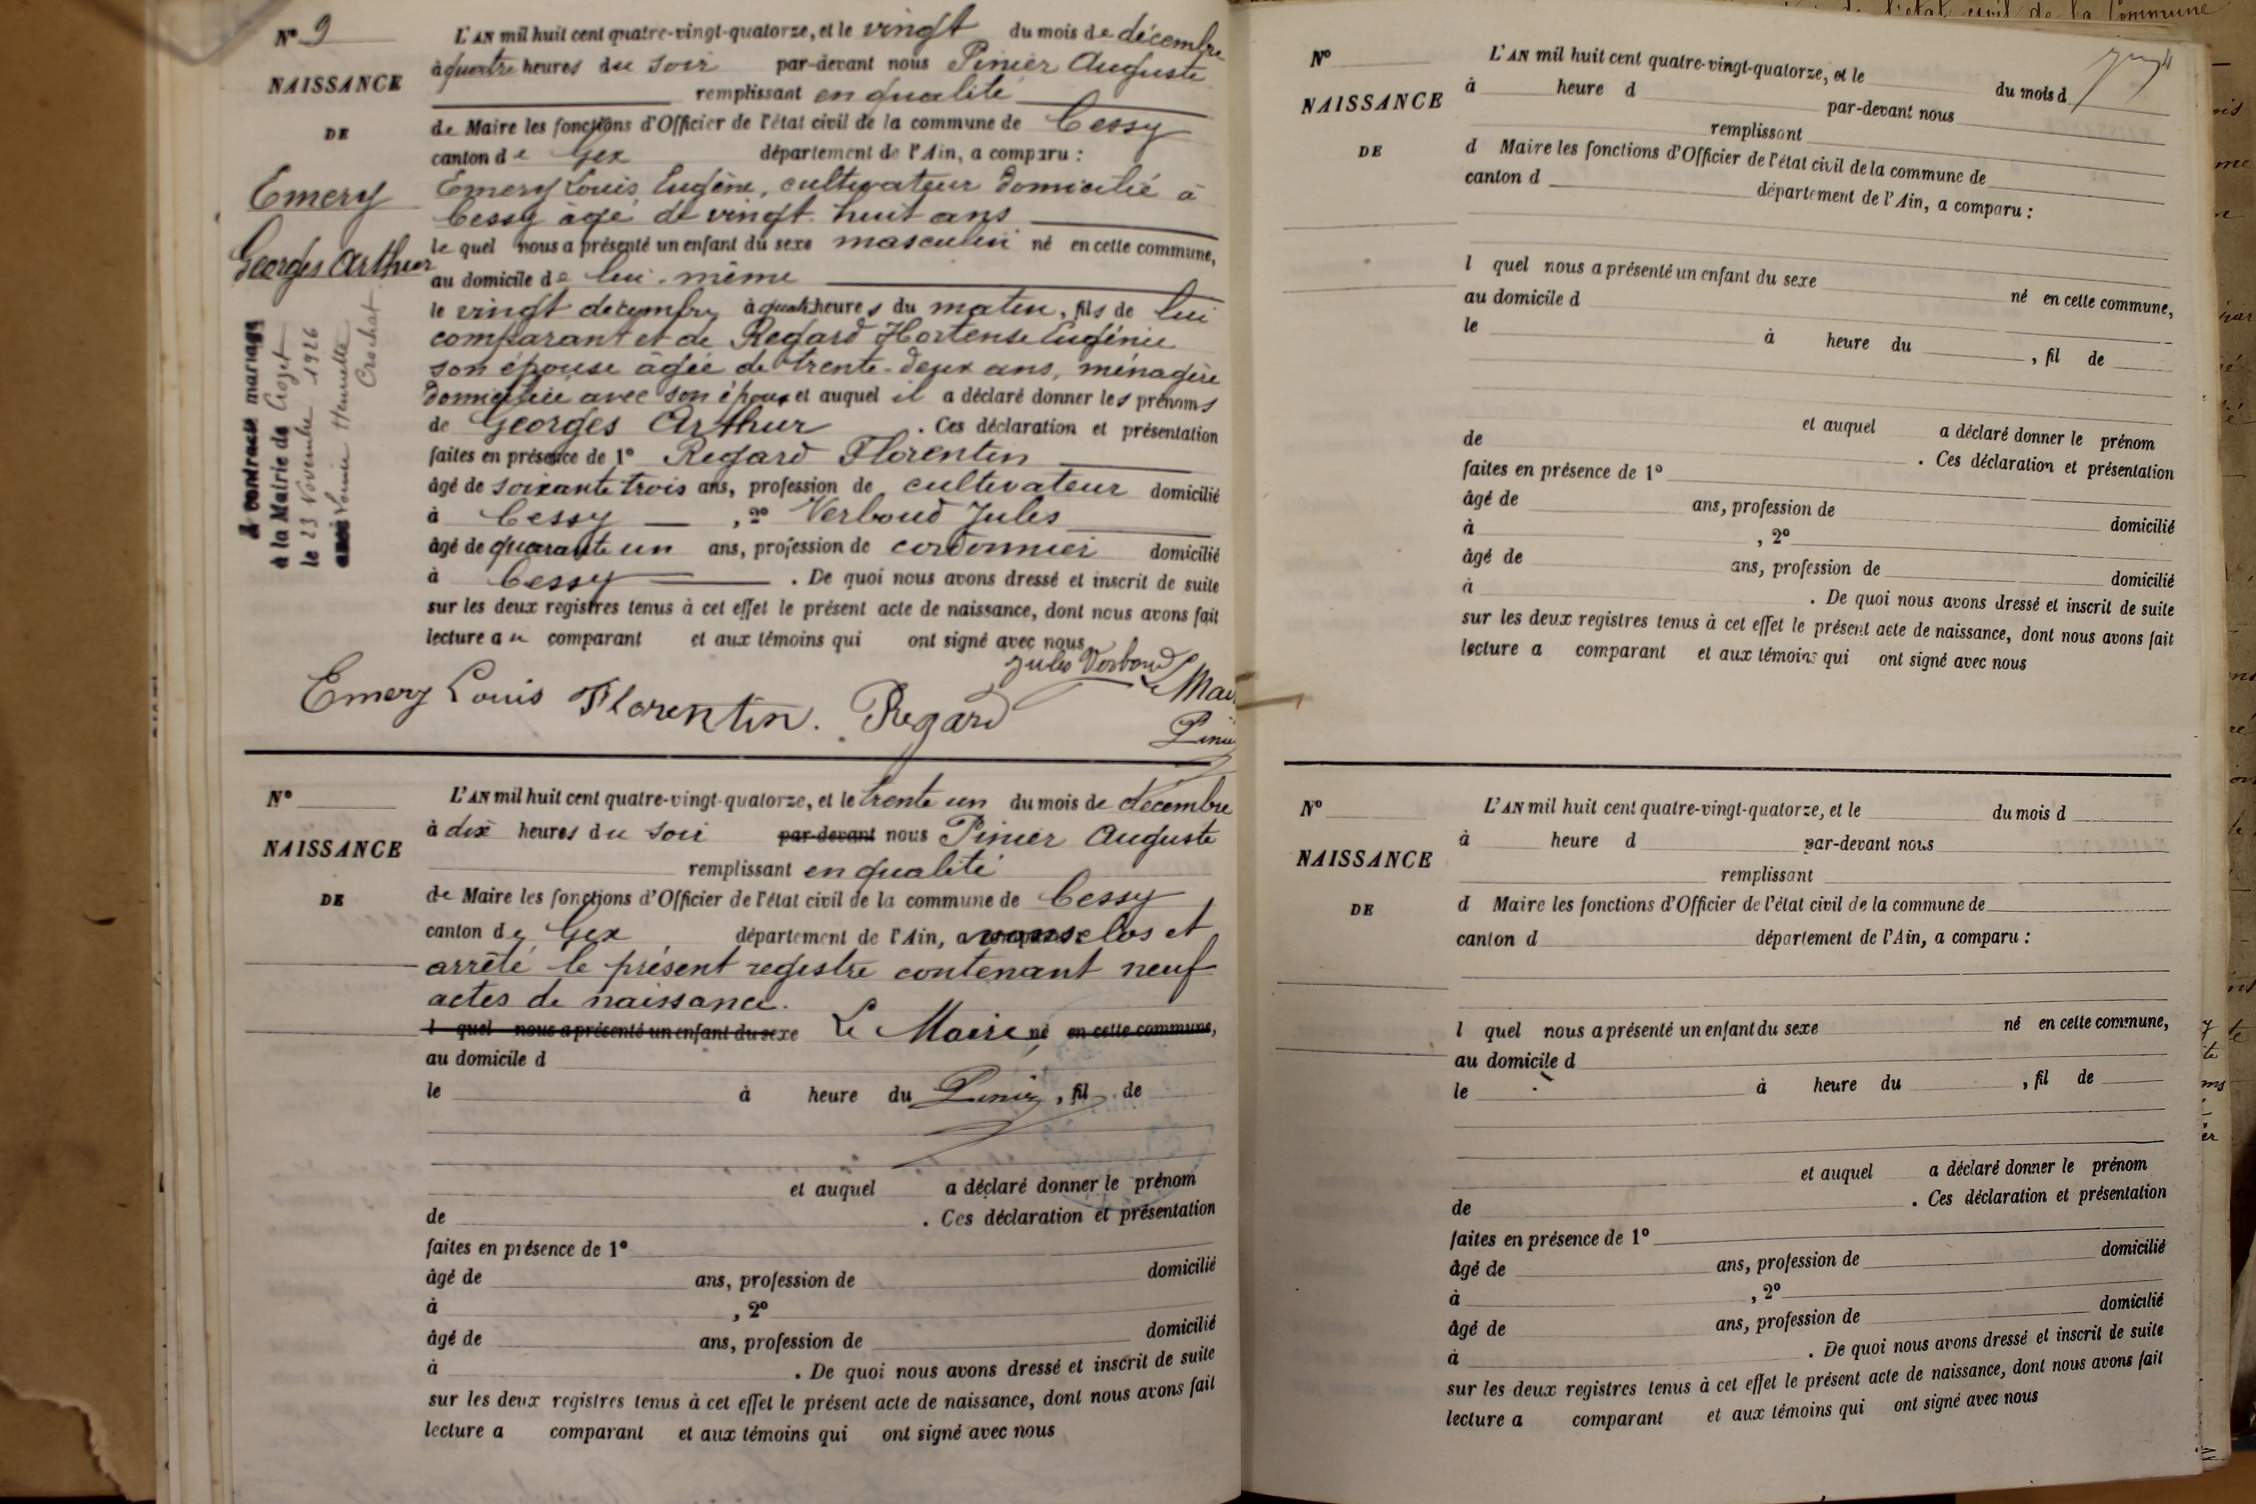 N° 9
NAISSANCE
DE
Emery
Georges Arthur
A contracté mariage
à la Mairie de Crozet
le 23 Novembre 1926
avec Louise Henriette
Crochat
L'AN mil huit cent quatre-vingt-quatorze, et le vingt du mois de décembre
à quatre heures du soir par-devant nous Pinier Auguste
remplissant en qualité
de Maire les fonctions d'Officier de l'état civil de la commune de Cessy
canton de Gex département de l'Ain, a comparu :
Emery Louis Eugène, cultivateur domicilié à
Cessy âgé de vingt-huit ans
le quel nous a présenté un enfant du sexe masculin né en cette commune,
au domicile de lui-même
le vingt décembre à quatre heures du matin, fils de lui
comparant et de Regard Hortense Eugénie
son épouse âgée de trente-deux ans, ménagère
domiciliée avec son époux et auquel il a déclaré donner les prénoms
de Georges Arthur . Ces déclaration et présentation
faites en présence de 1° Regard Florentin
âgé de soixante trois ans, profession de cultivateur domicilié
à Cessy , 2° Verboud Jules
âgé de quarante un ans, profession de cordonnier domicilié
à Cessy . De quoi nous avons dressé et inscrit de suite
sur les deux registres tenus à cet effet le présent acte de naissance, dont nous avons fait
lecture au comparant et aux témoins qui ont signé avec nous
Jules Verboud
Le Mai
Emery Louis Florentin. Regard
Pinie
N°
NAISSANCE
DE
L'AN mil huit cent quatre-vingt-quatorze, et le trente un du mois de décembre
à dix heures du soir par-devant nous Pinier Auguste
remplissant en qualité
de Maire les fonctions d'Officier de l'état civil de la commune de Cessy
canton de Gex département de l'Ain, avons clos et
arrêté le présent registre contenant neuf
actes de naissance.
l quel nous a présenté un enfant du sexe Le Maire, né en cette commune,
au domicile d
le à heure du Pinier , fil de
et auquel a déclaré donner le prénom
de . Ces déclaration et présentation
faites en présence de 1°
âgé de ans, profession de domicilié
à , 2°
âgé de ans, profession de domicilié
à . De quoi nous avons dressé et inscrit de suite
sur les deux registres tenus à cet effet le présent acte de naissance, dont nous avons fait
lecture a comparant et aux témoins qui ont signé avec nous
N°
NAISSANCE
DE
L'AN mil huit cent quatre-vingt-quatorze, et le du mois d
à heure d par-devant nous
remplissant
d Maire les fonctions d'Officier de l'état civil de la commune de
canton d département de l'Ain, a comparu :
l quel nous a présenté un enfant du sexe né en cette commune,
au domicile d
le à heure du , fil de
et auquel a déclaré donner le prénom
de . Ces déclaration et présentation
faites en présence de 1°
âgé de ans, profession de domicilié
à , 2°
âgé de ans, profession de domicilié
à . De quoi nous avons dressé et inscrit de suite
sur les deux registres tenus à cet effet le présent acte de naissance, dont nous avons fait
lecture a comparant et aux témoins qui ont signé avec nous
N°
NAISSANCE
DE
L'AN mil huit cent quatre-vingt-quatorze, et le du mois d
à heure d par-devant nous
remplissant
d Maire les fonctions d'Officier de l'état civil de la commune de
canton d département de l'Ain, a comparu :
l quel nous a présenté un enfant du sexe né en cette commune,
au domicile d
le à heure du , fil de
et auquel a déclaré donner le prénom
de . Ces déclaration et présentation
faites en présence de 1°
âgé de ans, profession de domicilié
à , 2°
âgé de ans, profession de domicilié
à . De quoi nous avons dressé et inscrit de suite
sur les deux registres tenus à cet effet le présent acte de naissance, dont nous avons fait
lecture a comparant et aux témoins qui ont signé avec nous
de l'état civil de la Commune